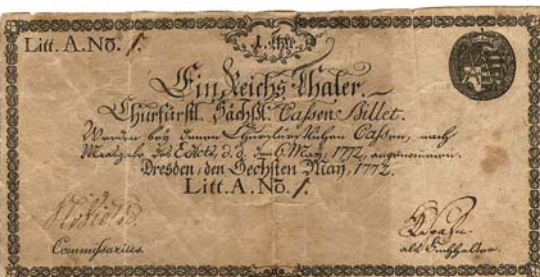 1. Rthlr.
Litt. A. No. 1.
Ein Reichs-Thaler.
Churfürstl. Sächßl. Caßen-Billet.
Werden bey denen Churfürstlichen Caßen, nach
Maasgabe des Edicts, d. d. den 6. May, 1772, angenommen.
Dresden, den Sechsten May, 1772.
Litt. A. No. 1.
Commissarius.
als Buchhalter.